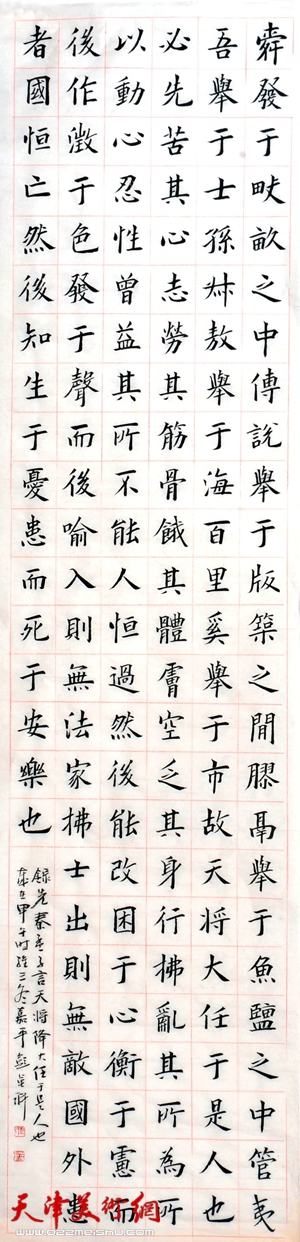 舜發于畎畝之中傅說舉于版築之間膠鬲舉于魚鹽之中管夷
吾舉于士孫叔敖舉于海百里奚舉于市故天將大任于是人也
必先苦其心志勞其筋骨餓其體膚空乏其身行拂亂其所為所
以動心忍性曾益其所不能人恒過然後能改困于心衡于慮而
後作徵于色發于聲而後喻入則無法家拂士出則無敵國外患
者國恒亡然後知生于憂患而死于安樂也
錄先秦孟子言天將降大任于是人也
歲在甲午時維三冬嘉平彭
天津美術網
www.022meishu.com